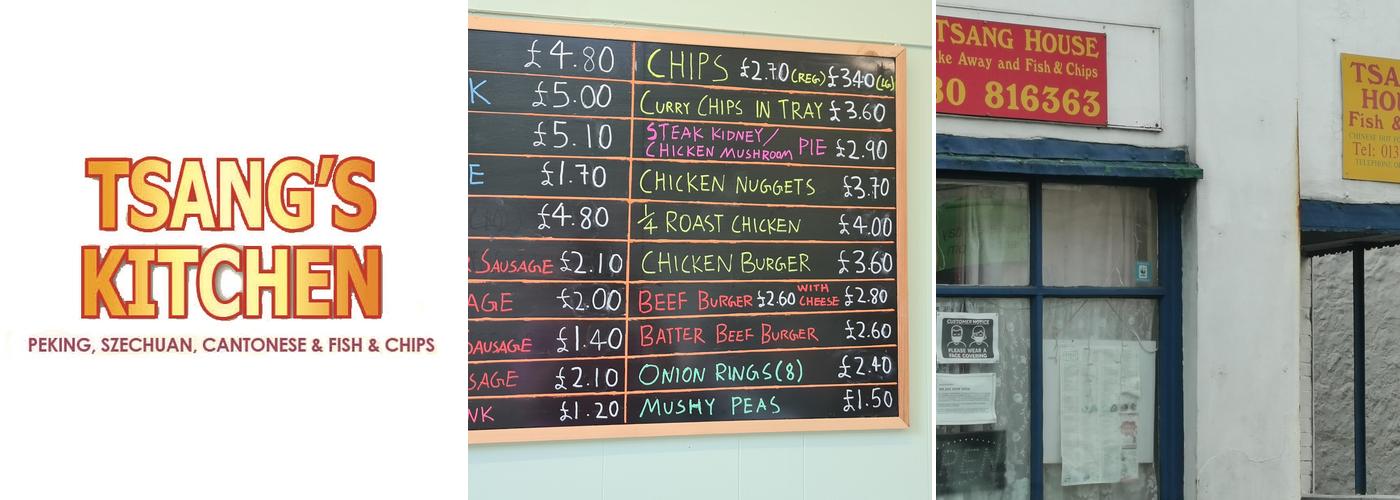 TSANG'S
KITCHEN
PEKING, SZECHUAN, CANTONESE & FISH & CHIPS
£4.80
K £5.00
£5.10
E £1.70
£4.80
SAUSAGE £2.10
AGE £2.00
AUSAGE £1.40
SAGE £2.10
NK £1.20
CHIPS £2.70 (REG) £3.40 (LG)
CURRY CHIPS IN TRAY £3.60
STEAK KIDNEY/
CHICKEN MUSHROOM PIE £2.90
CHICKEN NUGGETS £3.70
1/4 ROAST CHICKEN £4.00
CHICKEN BURGER £3.60
BEEF BURGER £2.60 WITH CHEESE £2.80
BATTER BEEF BURGER £2.60
ONION RINGS (8) £2.40
MUSHY PEAS £1.50
TSANG HOUSE
ke Away and Fish & Chips
30 816363
CUSTOMER NOTICE
PLEASE WEAR A
FACE COVERING
TSA
HOU
Fish &
CHINESE HOT
Tel: 013
TELEPHONE